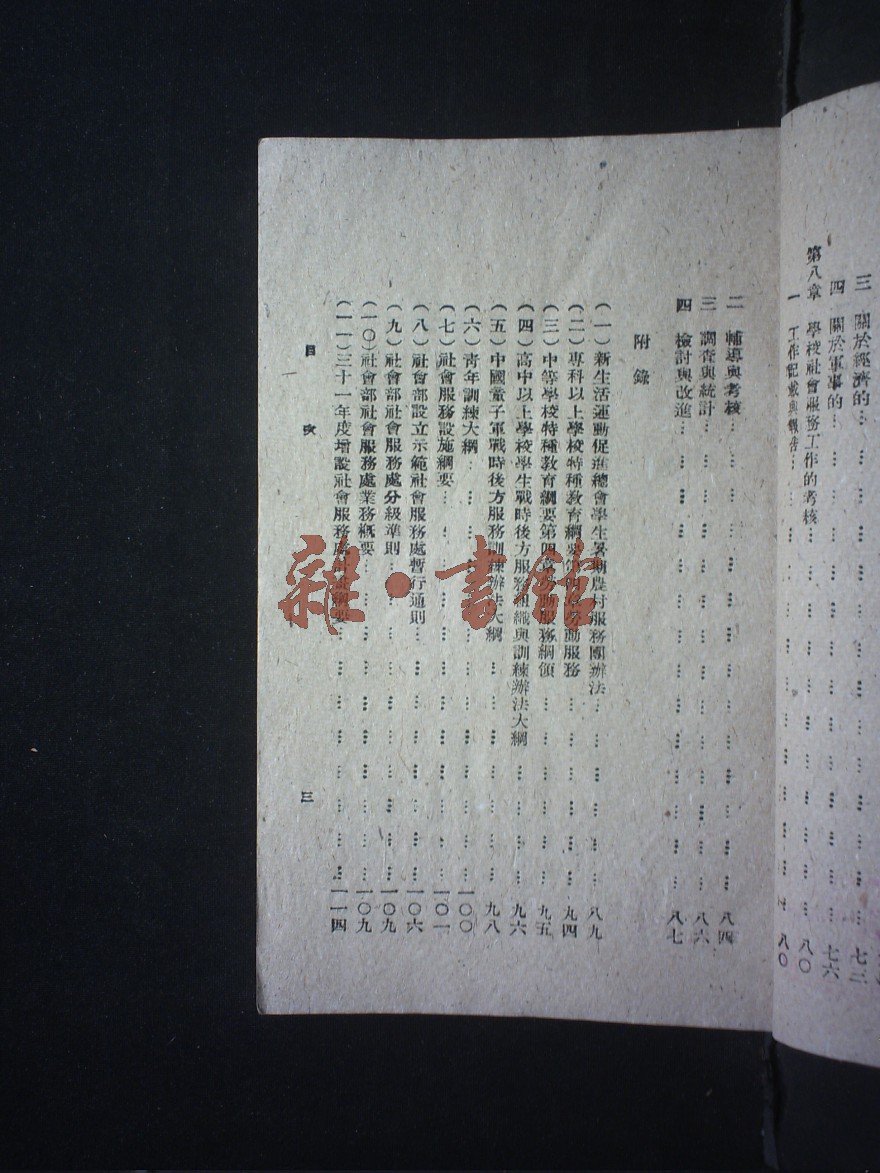 三 關於經濟的… … … … 七二
四 關於軍事的… … … … 七六
第八章 學校社會服務工作的考核 … … … 八〇
一 工作記載與報告… … … … 八〇
二 輔導與考核… … … … 八四
三 調查與統計… … … … 八六
四 檢討與改進… … … … 八七
附錄
(一)新生活運動促進總會學生暑期農村服務團辦法… … … … 八九
(二)專科以上學校特種教育綱要第四章勞動服務 … … … … 九四
(三)中等學校特種教育綱要第四章勞動服務綱領 … … … … 九五
(四)高中以上學校學生戰時後方服務組織與訓練辦法大綱 … … … 九六
(五)中國童子軍戰時後方服務訓練辦法大綱 … … … … 九八
(六)青年訓練大綱 … … … … 一〇〇
(七)社會服務設施綱要… … … … 一〇一
(八)社會部設立示範社會服務處暫行通則… … … … 一〇六
(九)社會部社會服務處分級準則… … … … 一〇九
(一〇)社會部社會服務處業務概要… … … … 一〇九
(一一)三十一年度增設社會服務處計畫綱要… … … … 一一四
目 次
三
雜·書館